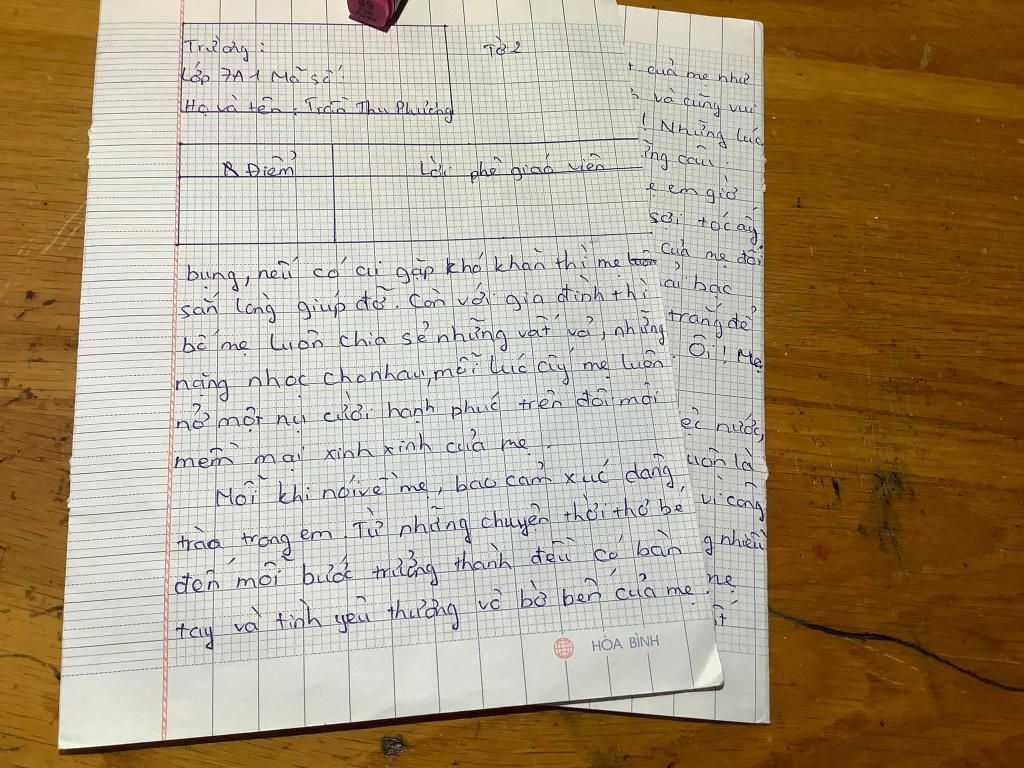 Trường:
Tờ 2
Lớp 7A1 Mã số:
Họ và tên: Trần Thu Phương
Điểm
Lời phê giáo viên
bụng, nếu có ai gặp khó khăn thì mẹ
sẵn lòng giúp đỡ. Còn với gia đình thì
bố mẹ luôn chia sẻ những vất vả, những
nặng nhọc cho nhau, mỗi lúc ấy mẹ luôn
nở một nụ cười hạnh phúc trên đôi môi
mềm mại xinh xinh của mẹ.
Mỗi khi nói về mẹ, bao cảm xúc dâng
trào trong em. Từ những chuyện thời thơ bé
đến mỗi bước trưởng thành đều có bàn
tay và tình yêu thương vô bờ bến của mẹ.
HÒA BÌNH
của mẹ như
và cũng vui
! Những lúc
em giờ
sợi tóc ấy
của mẹ đối
bạc
trắng để
Ôi! Mẹ
nước,
là
vì công
nhiều
mẹ